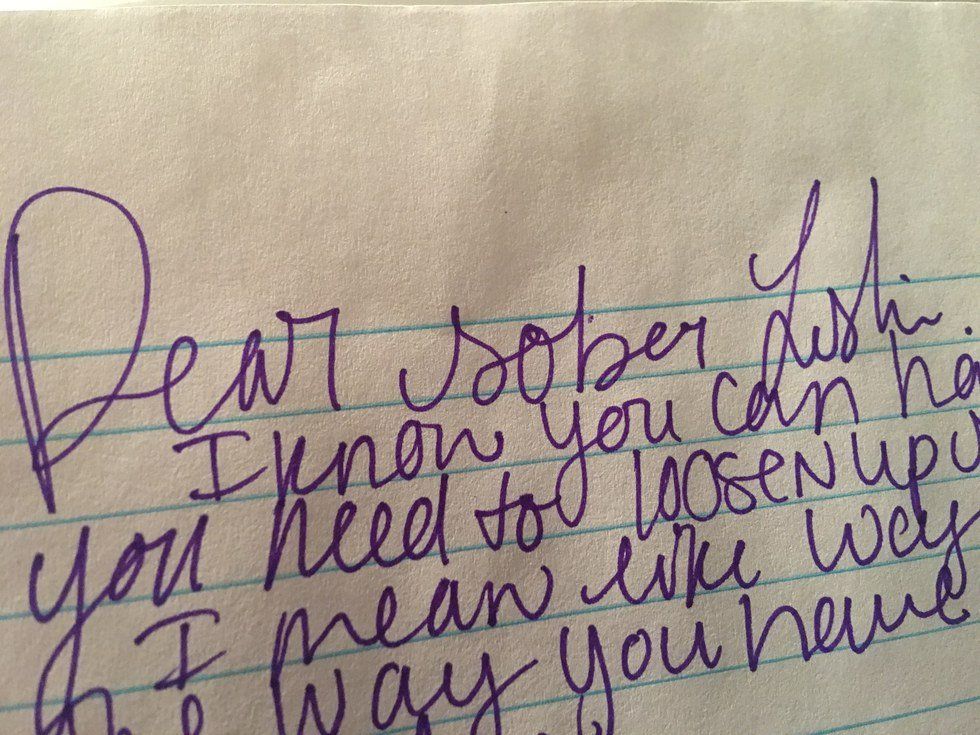 Dear sober Lesh
I know you can ha
you need to loosen up
I mean like way
way you have